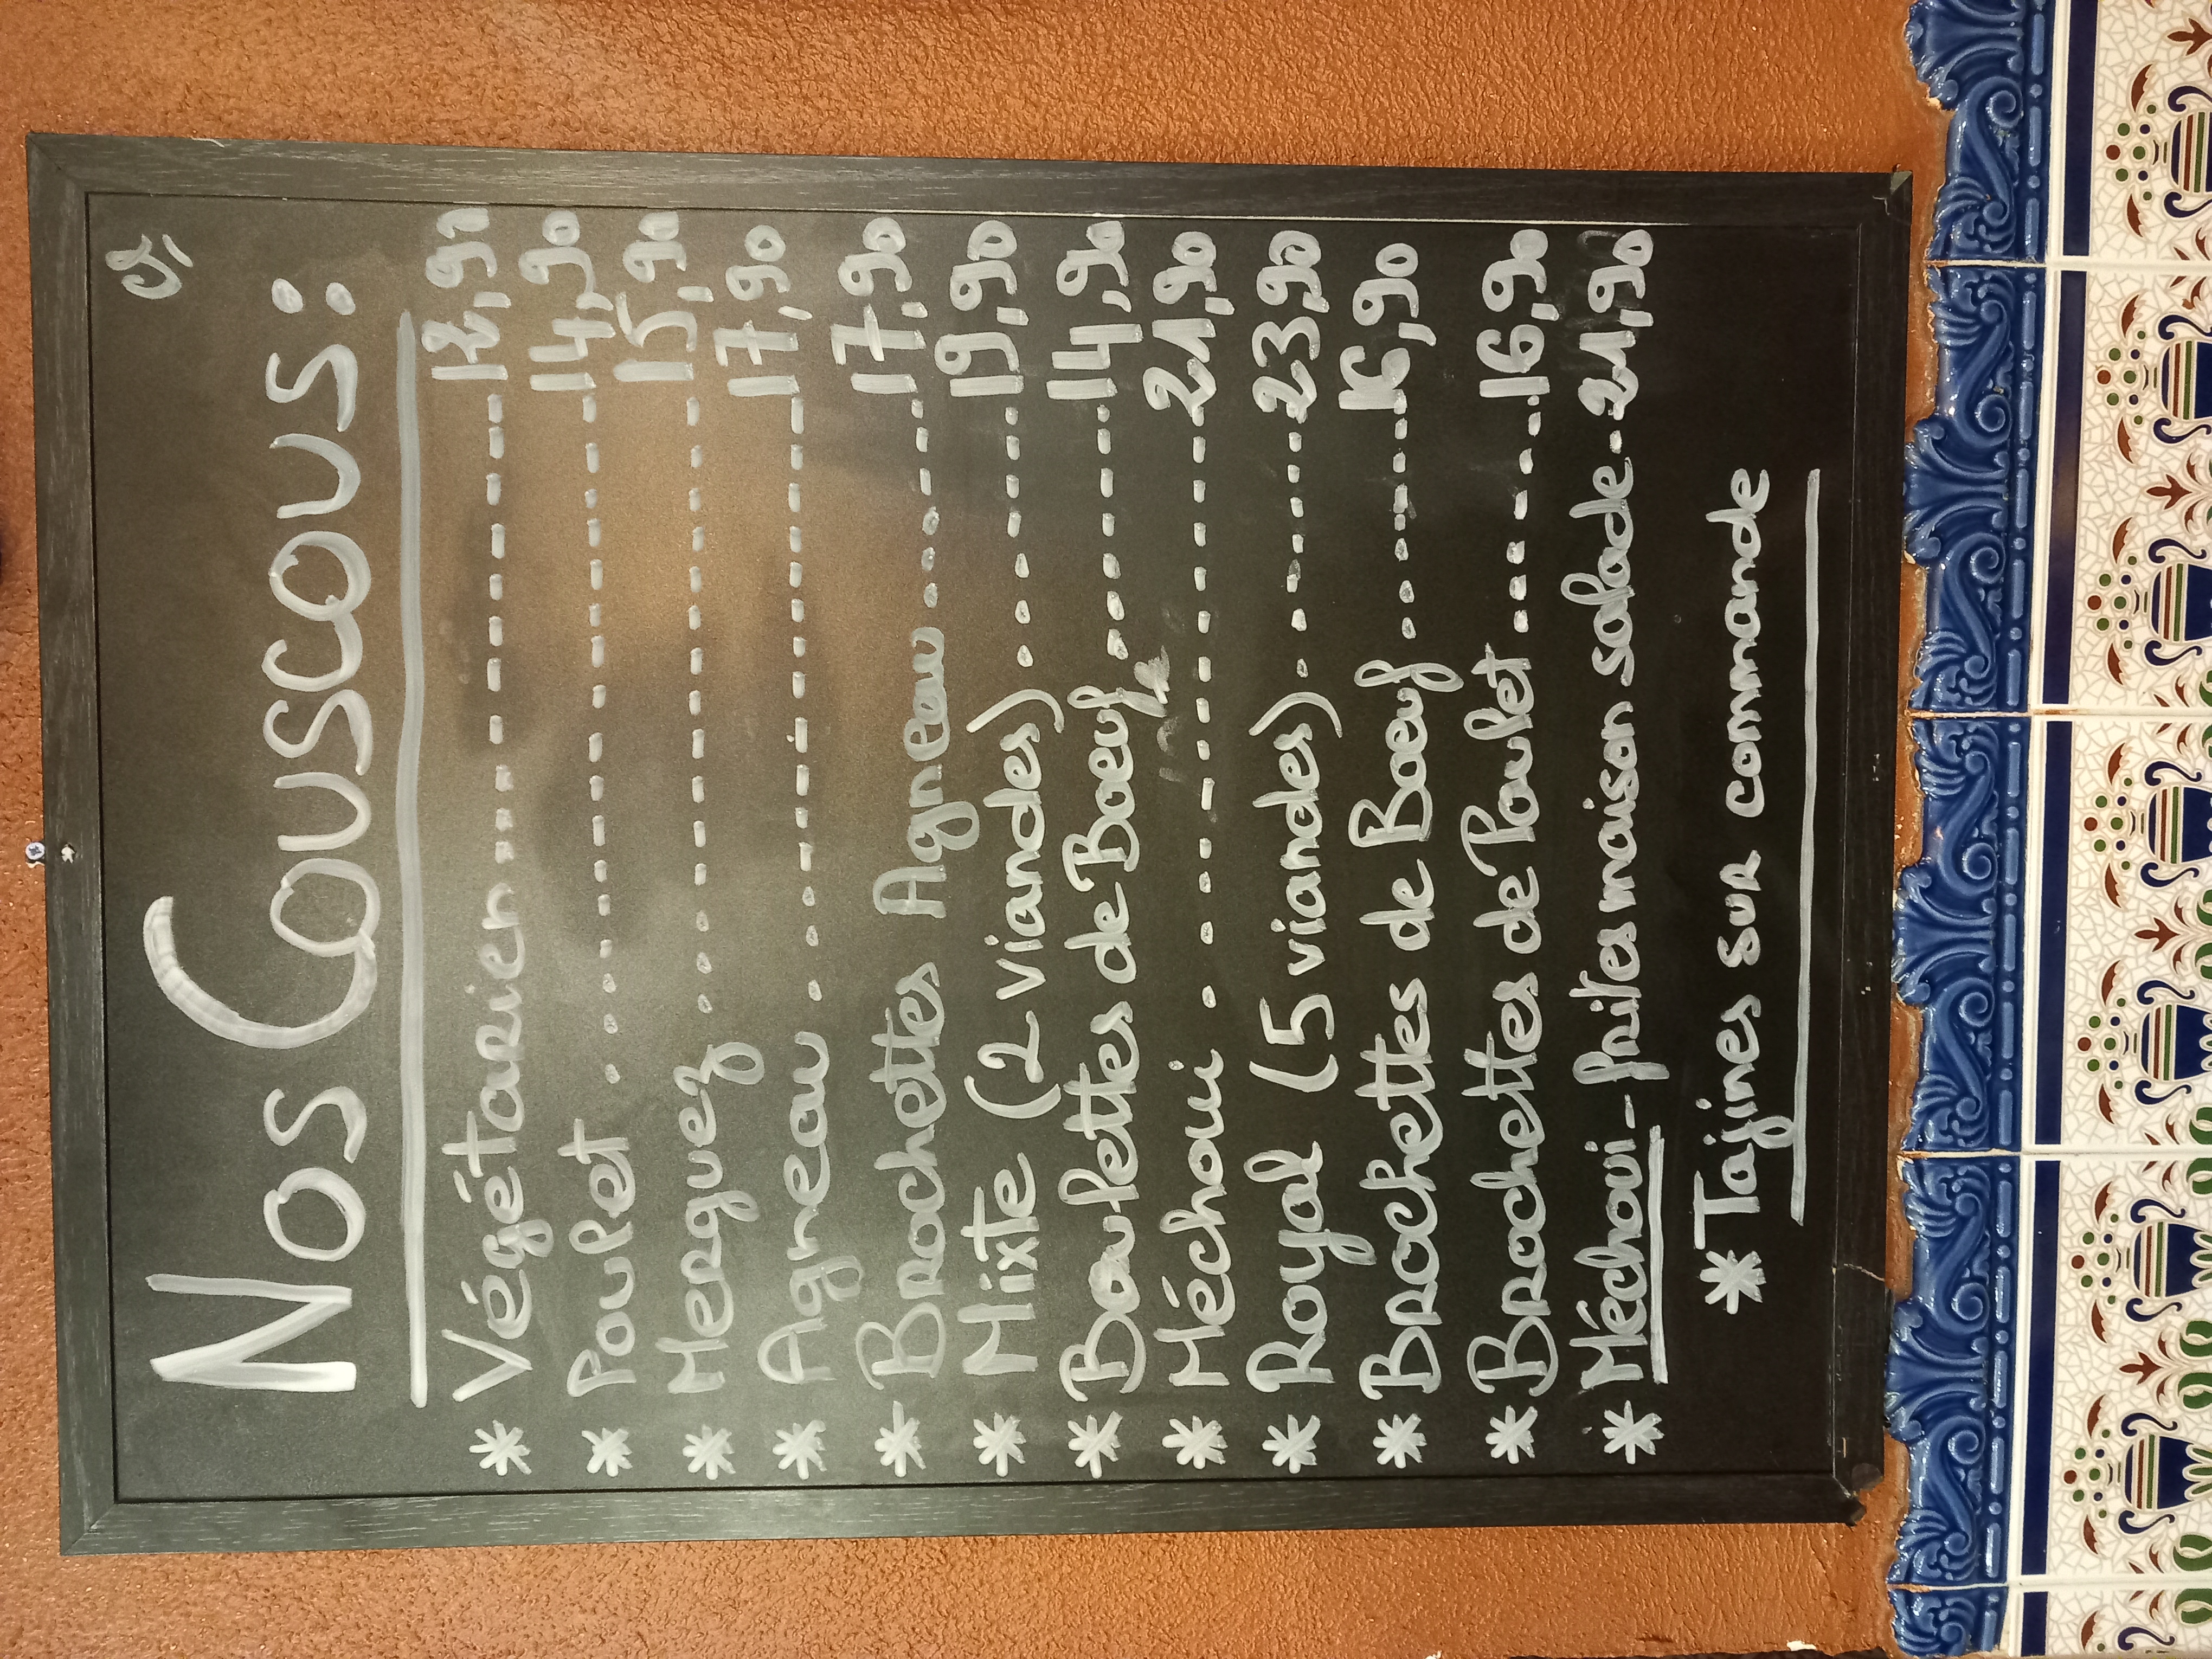 Nos Couscous:
* Végétarien ------------ 12,90
* Poulet ------------ 14,90
* Merguez ------------ 15,90
* Agneau ------------ 17,90
* Brochettes Agneau ------ 17,90
* Mixte (2 viandes) ------ 19,90
* Boulettes de Boeuf ------ 14,90
* Méchoui ------------ 21,90
* Royal (5 viandes) ------ 23,90
* Brochettes de Boeuf ------ 16,90
* Brochettes de Poulet ----- 16,90
* Méchoui - frites maison salade -- 21,90
* Tajines sur commande